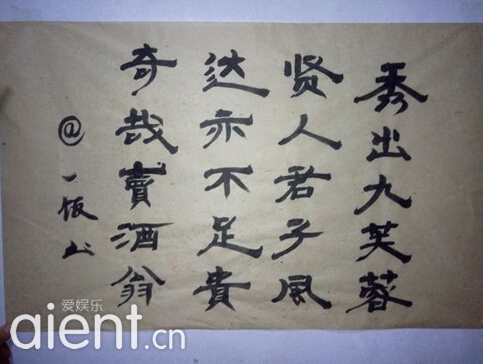 秀出九芙蓉
贤人君子风
达亦不足貴
奇哉賣酒翁
@一饭山
爱娱乐
aient.cn